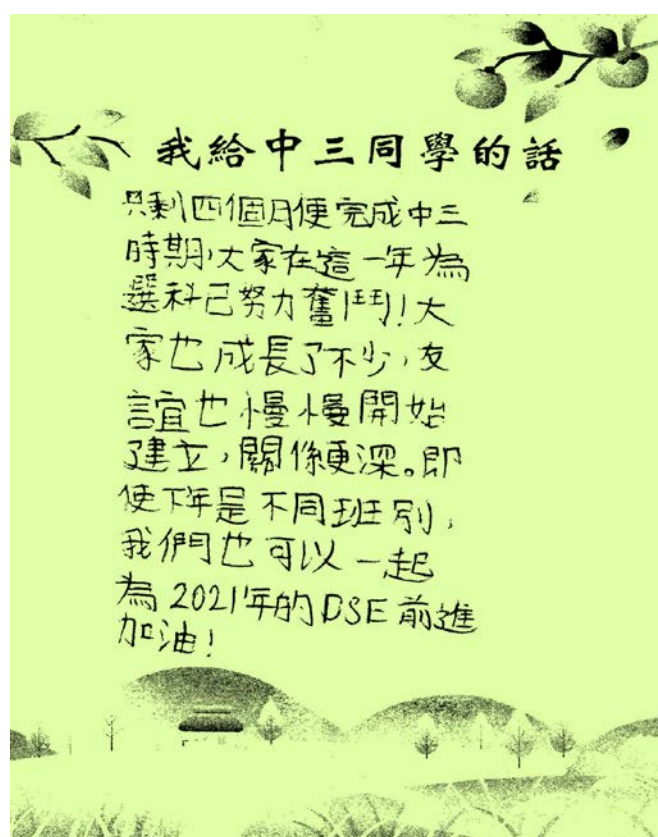 我給中三同學的話
只剩四個月便完成中三
時期,大家在這一年為
選科已努力奮鬥!大
家也成長了不少,友
誼也慢慢開始
建立,關係更深。即
使下年是不同班別,
我們也可以一起
為2021年的DSE前進
加油!